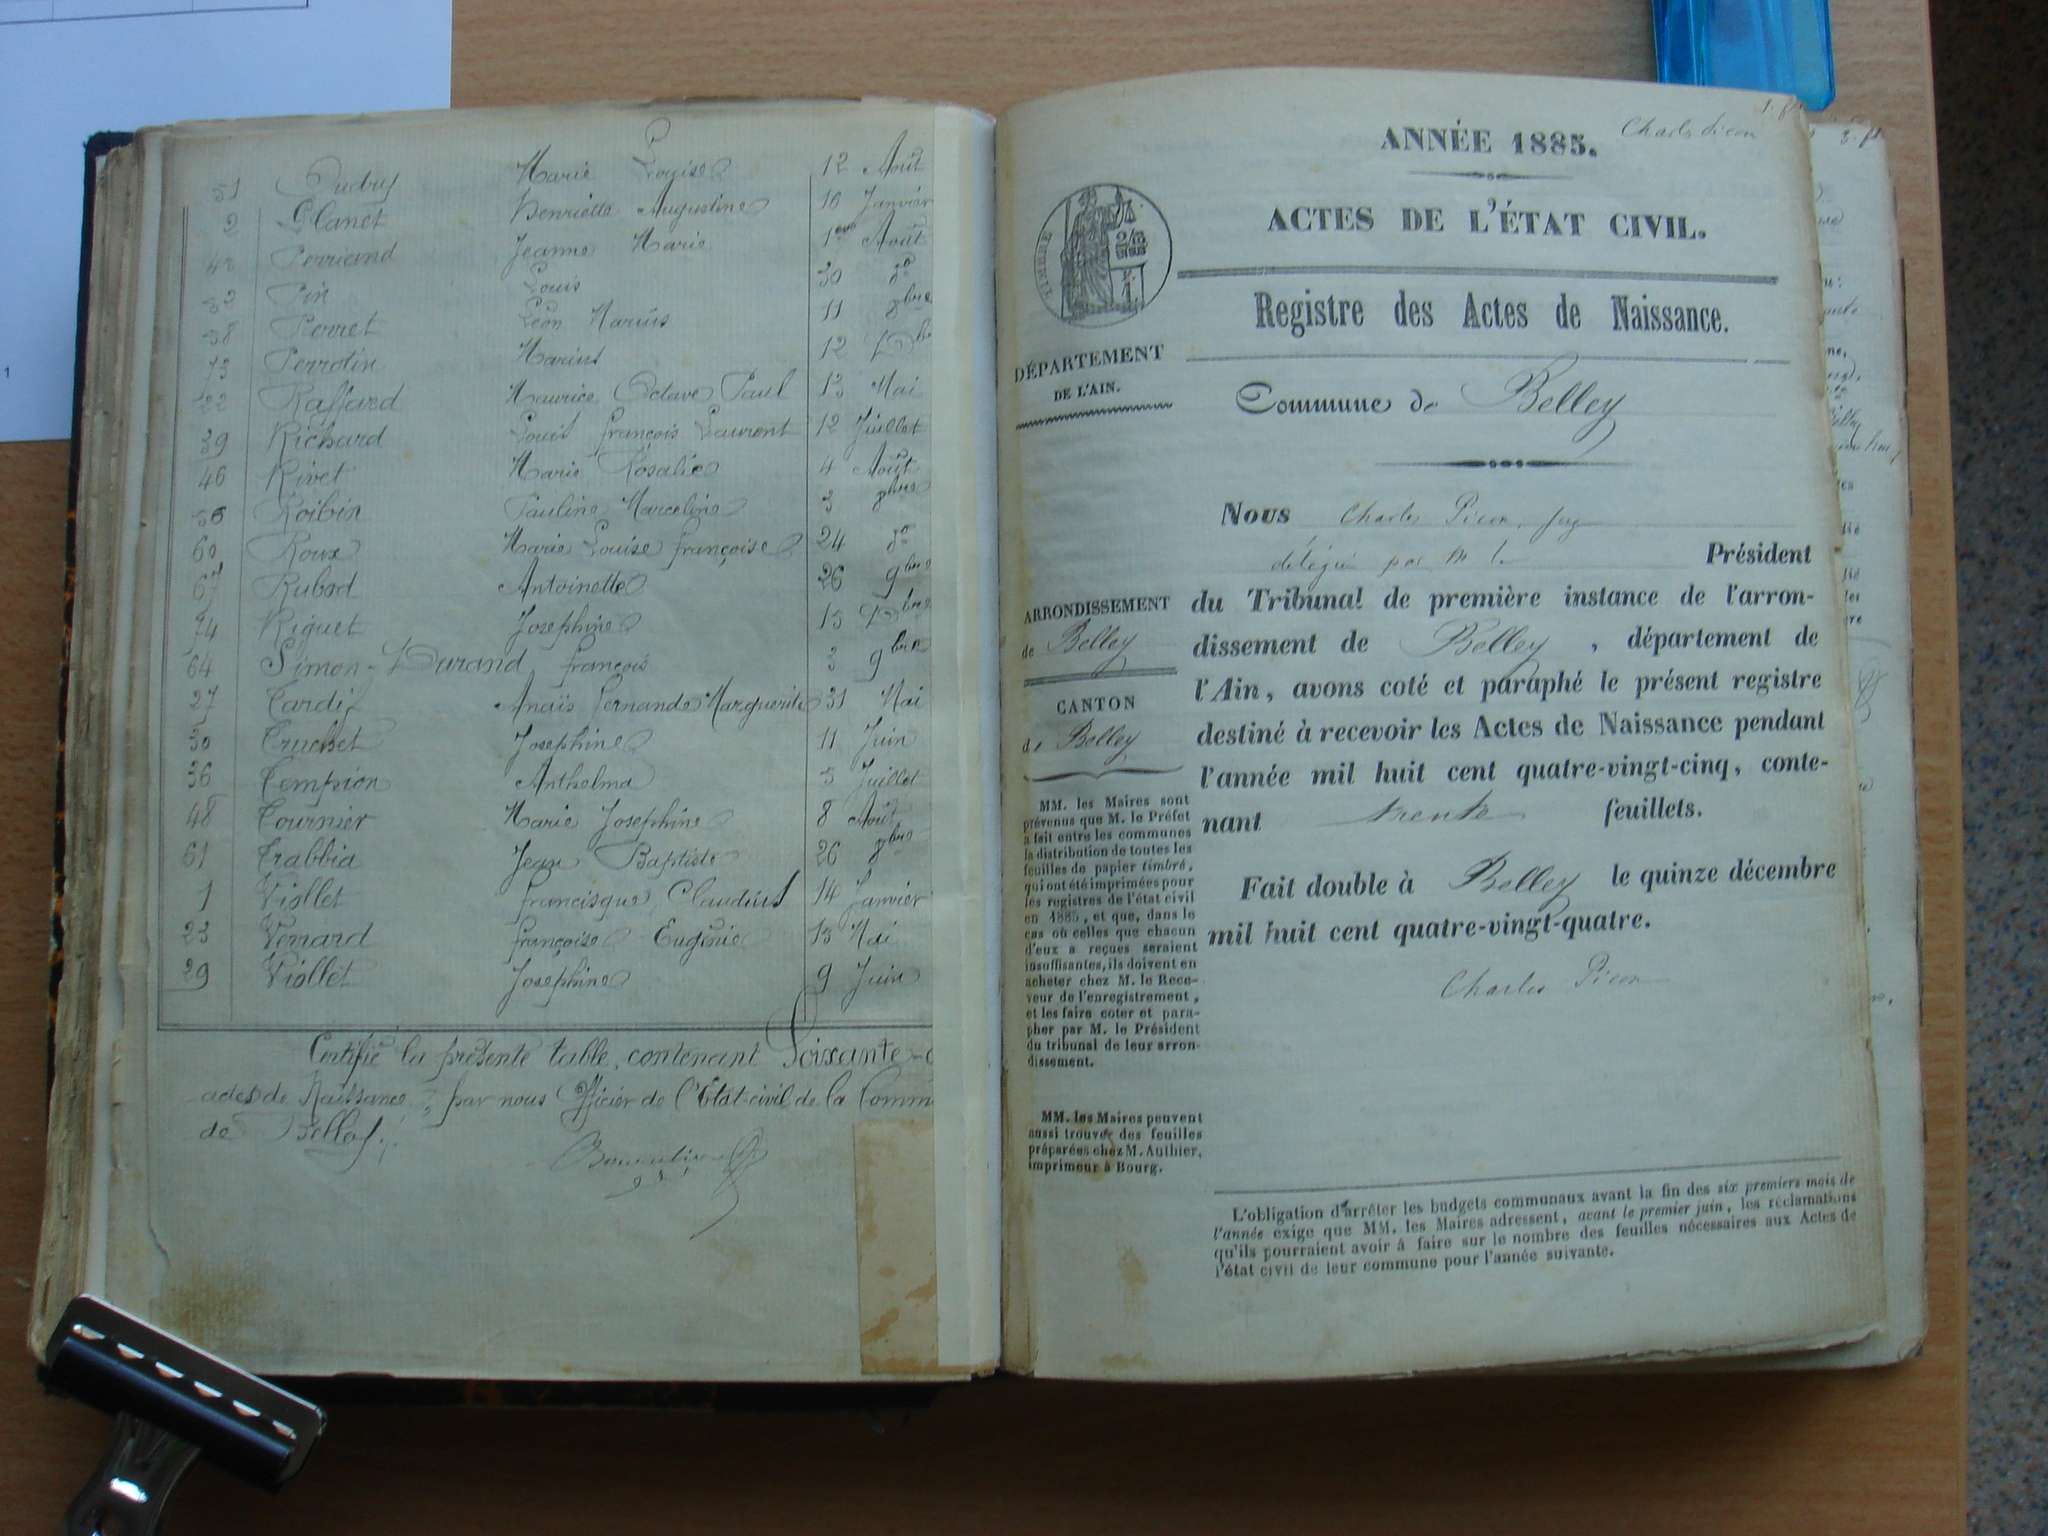 Marie Louise 12 Août
2 Planet Henriette Augustine 16 Janvier
Perriand Jeanne Marie 1er Août
52 Pin Louis 30 do
58 Perret Léon Marius 11 8bre
73 Perrotin Marius 12 Dbre
22 Raffard Maurice Octave Paul 13 Mai
39 Richard Louis François Laurent 12 Juillet
46 Rivet Marie Rosalie 4 Août
56 Roibin Pauline Marceline 3 8bre
60 Roux Marie Louise Françoise 24 do
67 Rubod Antoinette 26 9bre
74 Riguet Josephine 15 Dbre
64 Simon-Durand François 3 9bre
27 Tardif Anaïs Fernande Marguerite 31 Mai
30 Truchet Josephine 11 Juin
36 Tempion Anthelma 5 Juillet
48 Tournier Marie Josephine 8 Août
61 Trabbia Jean Baptiste 26 8bre
1 Viollet Francisque Claudius 14 Janvier
23 Verrard Françoise Eugénie 13 Mai
29 Viollet Josephine 9 Juin
Certifié la présente table, contenant Soixante-
actes de Naissance, par nous Officier de l'État-civil de la Comm
de Belley.
Charles Picon
1. ft
ANNÉE 1885.
ACTES DE L'ÉTAT CIVIL.
TIMBRE
Registre des Actes de Naissance.
DÉPARTEMENT
DE L'AIN.
Commune de Belley
Nous Charles Picon, juge
délégué par M. le Président
du Tribunal de première instance de l'arron-
dissement de Belley, département de
l'Ain, avons coté et paraphé le présent registre
destiné à recevoir les Actes de Naissance pendant
l'année mil huit cent quatre-vingt-cinq, conte-
nant trente feuillets.
Fait double à Belley le quinze décembre
mil huit cent quatre-vingt-quatre.
Charles Picon
ARRONDISSEMENT
de Belley
CANTON
de Belley
MM. les Maires sont
prévenus que M. le Préfet
a fait entre les communes
la distribution de toutes les
feuilles de papier timbré,
qui ont été imprimées pour
les registres de l'état civil
en 1885, et que, dans le
cas où celles que chacun
d'eux a reçues seraient
insuffisantes, ils doivent en
acheter chez M. le Rece-
veur de l'enregistrement,
et les faire coter et para-
pher par M. le Président
du tribunal de leur arron-
dissement.
MM. les Maires peuvent
aussi trouver des feuilles
préparées chez M. Authier,
imprimeur à Bourg.
L'obligation d'arrêter les budgets communaux avant la fin des six premiers mois de
l'année exige que MM. les Maires adressent, avant le premier juin, les réclamations
qu'ils pourraient avoir à faire sur le nombre des feuilles nécessaires aux Actes de
l'état civil de leur commune pour l'année suivante.
1